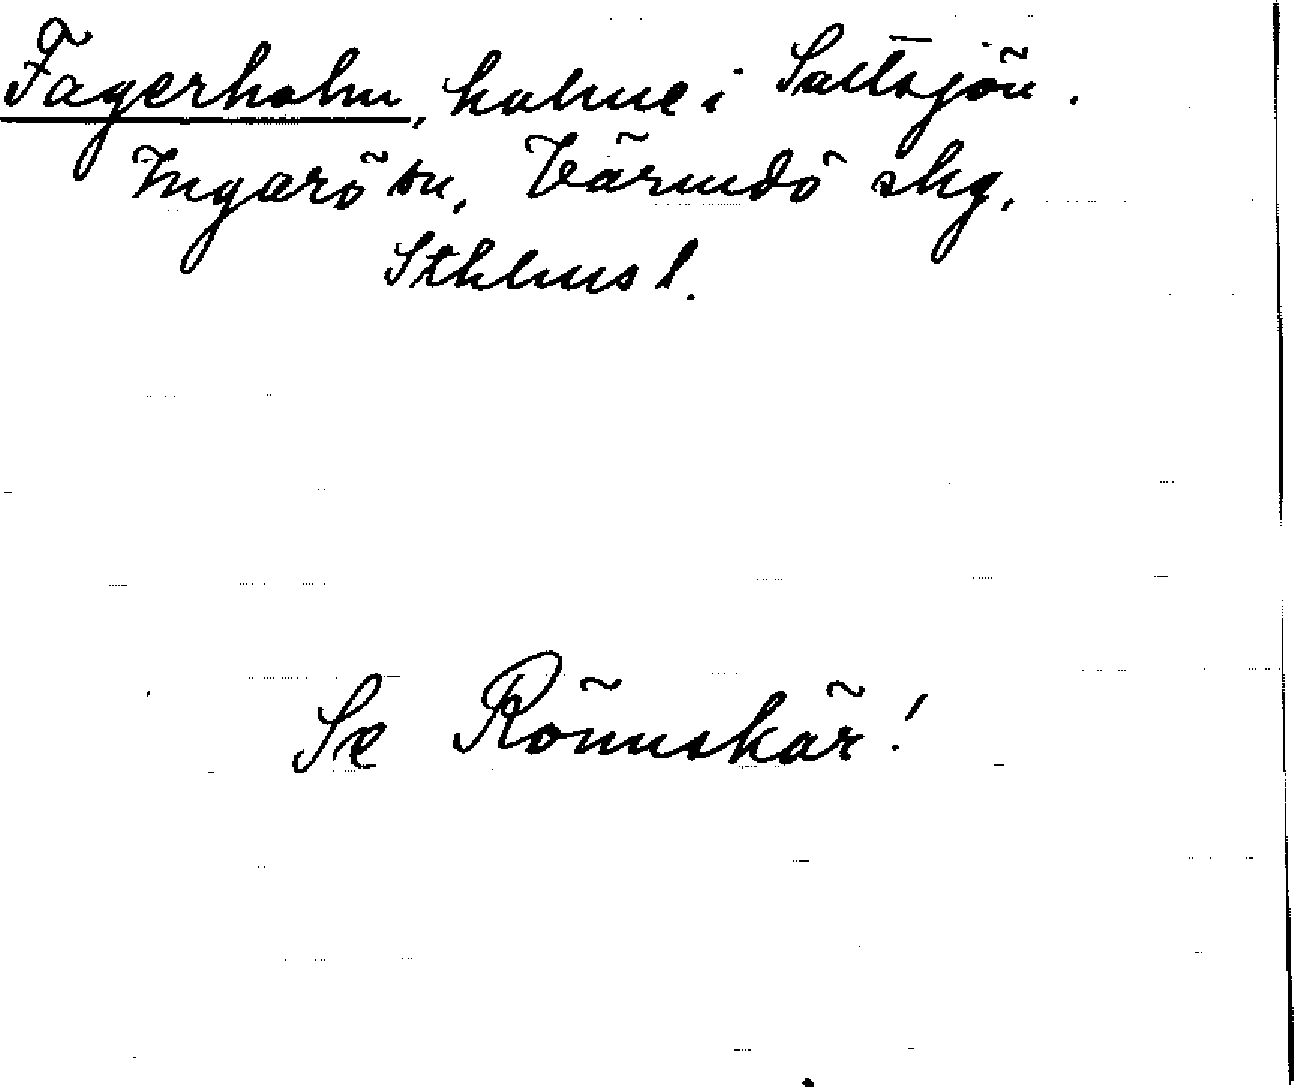 Fagerholm, holme i Saltsjön.
Ingarö sn, Värmdö skg,
Sthlms l.
Se Rönnskär!